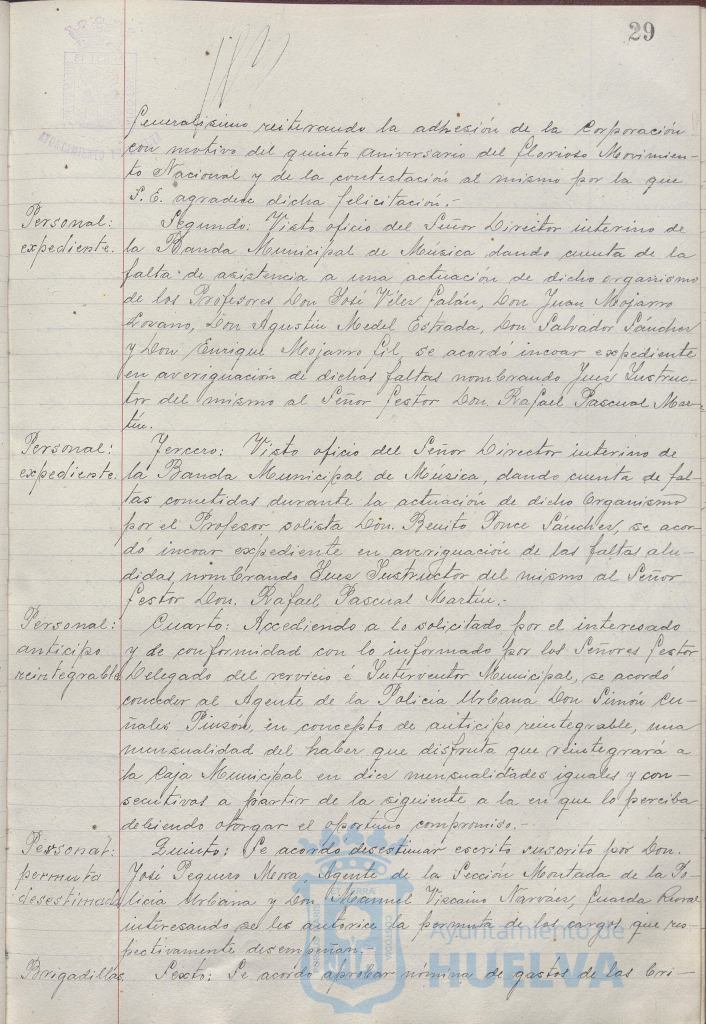 29
Generalísimo reiterando la adhesión de la Corporación
con motivo del quinto aniversario del Glorioso Movimien-
to Nacional y de la contestación al mismo por la que
S. E. agradece dicha felicitación.-
Personal: Segundo: Visto oficio del Señor Director interino de
expediente. la Banda Municipal de Música dando cuenta de la
falta de asistencia a una actuación de dicho organismo
de los Profesores Don José Vélez Galán, Don Juan Mojarro
Lozano, Don Agustín Medel Estrada, Don Salvador Sánchez
y Don Enrique Mojarro Gil, se acordó incoar expediente
en averiguación de dichas faltas nombrando Juez Instruc-
tor del mismo al Señor Gestor Don Rafael Pascual Mar-
tín.
Personal: Tercero: Visto oficio del Señor Director interino de
expediente. la Banda Municipal de Música, dando cuenta de fal-
tas cometidas durante la actuación de dicho Organismo
por el Profesor solista Don. Benito Ponce Sánchez, se acor-
dó incoar expediente en averiguación de las faltas alu-
didas, nombrando Juez Instructor del mismo al Señor
Gestor Don. Rafael Pascual Martín.-
Personal: Cuarto: Accediendo a lo solicitado por el interesado
anticipo y de conformidad con lo informado por los Señores Gestor
reintegrable Delegado del servicio é Interventor Municipal, se acordó
conceder al Agente de la Policía Urbana Don Simón Cu-
ñales Pinzón, en concepto de anticipo reintegrable, una
mensualidad del haber que disfruta que reintegrará a
la Caja Municipal en diez mensualidades iguales y con-
secutivas a partir de la siguiente a la en que lo perciba
debiendo otorgar el oportuno compromiso.-
Personal: Quinto: Se acordó desestimar escrito suscrito por Don.
permuta José Peguero Mora Agente de la Sección Montada de la Po-
desestimada licía Urbana y Don Manuel Vizcaíno Narváez, Guarda Rural
interesando se les autorice la permuta de los cargos que res-
pectivamente desempeñan.-
Brigadillas. Sexto: Se acordó aprobar nómina de gastos de las bri-
Ayuntamiento de
HUELVA